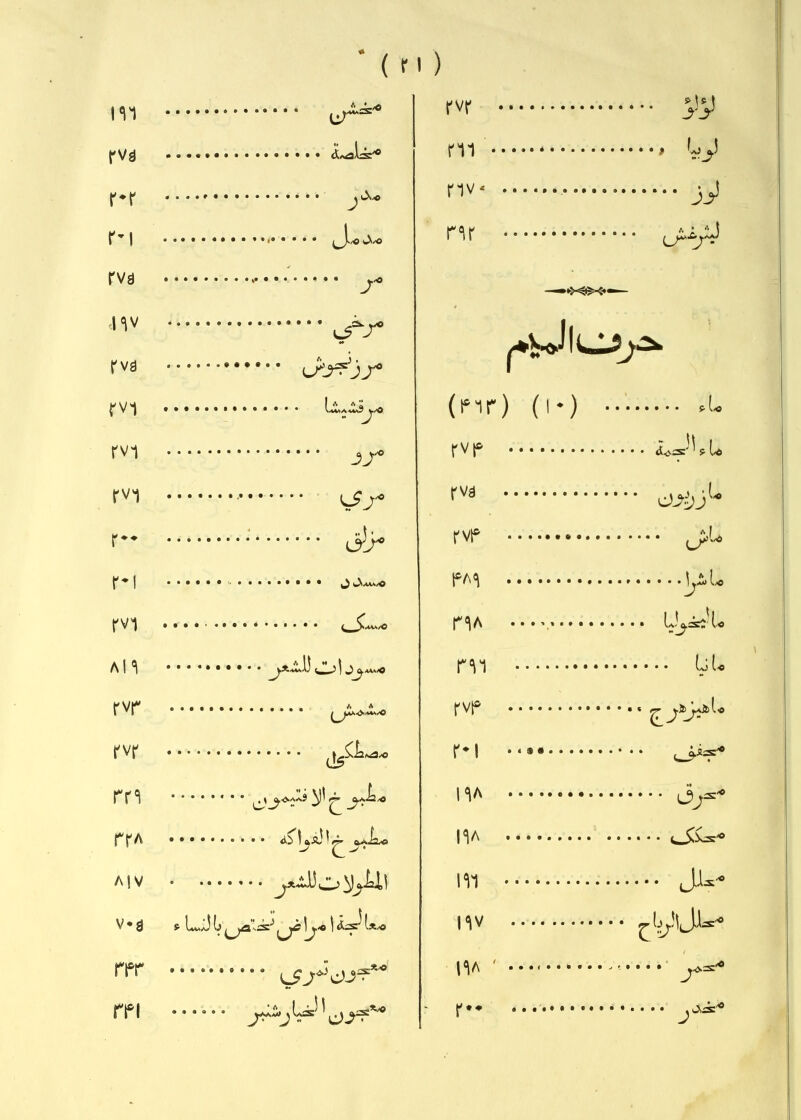 ( ٢١ )
لؤلؤ ٢٧٢
لوبيا ٢٦٦
لوز ٢٦٧
٣٩٢
حرف الميم
ماء (١٠) (٤٦٢)
ماء الجمة ٢٧٤
مازريون ٢٧٥
ماش ٢٧٤
ماشرا ٤٨٩
مالنخوليا ٣٩٨
مانيا ٣٩٦
ماهيزهرج ٢٧٤
مجفف ٢٠١
محرق ١٩٨
محكك ١٩٨
محلل ١٩٦
محلل الرياح ١٩٧
محمر ١٩٨
مخدر ٢٠٠
مخشن ١٩٦
مخلصة ٢٧٥
مدر ٢٠٢
مدمل ٢٠١
مر ٢٧٥
مرخي ١٩٧
مرزجوش ٢٧٥
مرقشيثا ٢٧٦
٢٧٦
مري ٢٧٦
مزلق ٢٠٠
مسدد ٢٠١
مسك ٢٧٦
مسودات الشعر ٨١٩
مشمش ٢٧٣
مصطكي ٢٧٢
مطبوخ الافتيمون ٣٢٩
مطبوخ الفواكه ٣٢٨
المطولات للشعر ٨١٧
معالجة امراض تختص بالنساء ٧٠٥
معجون
معجون الخيارشنبر ٣٤١